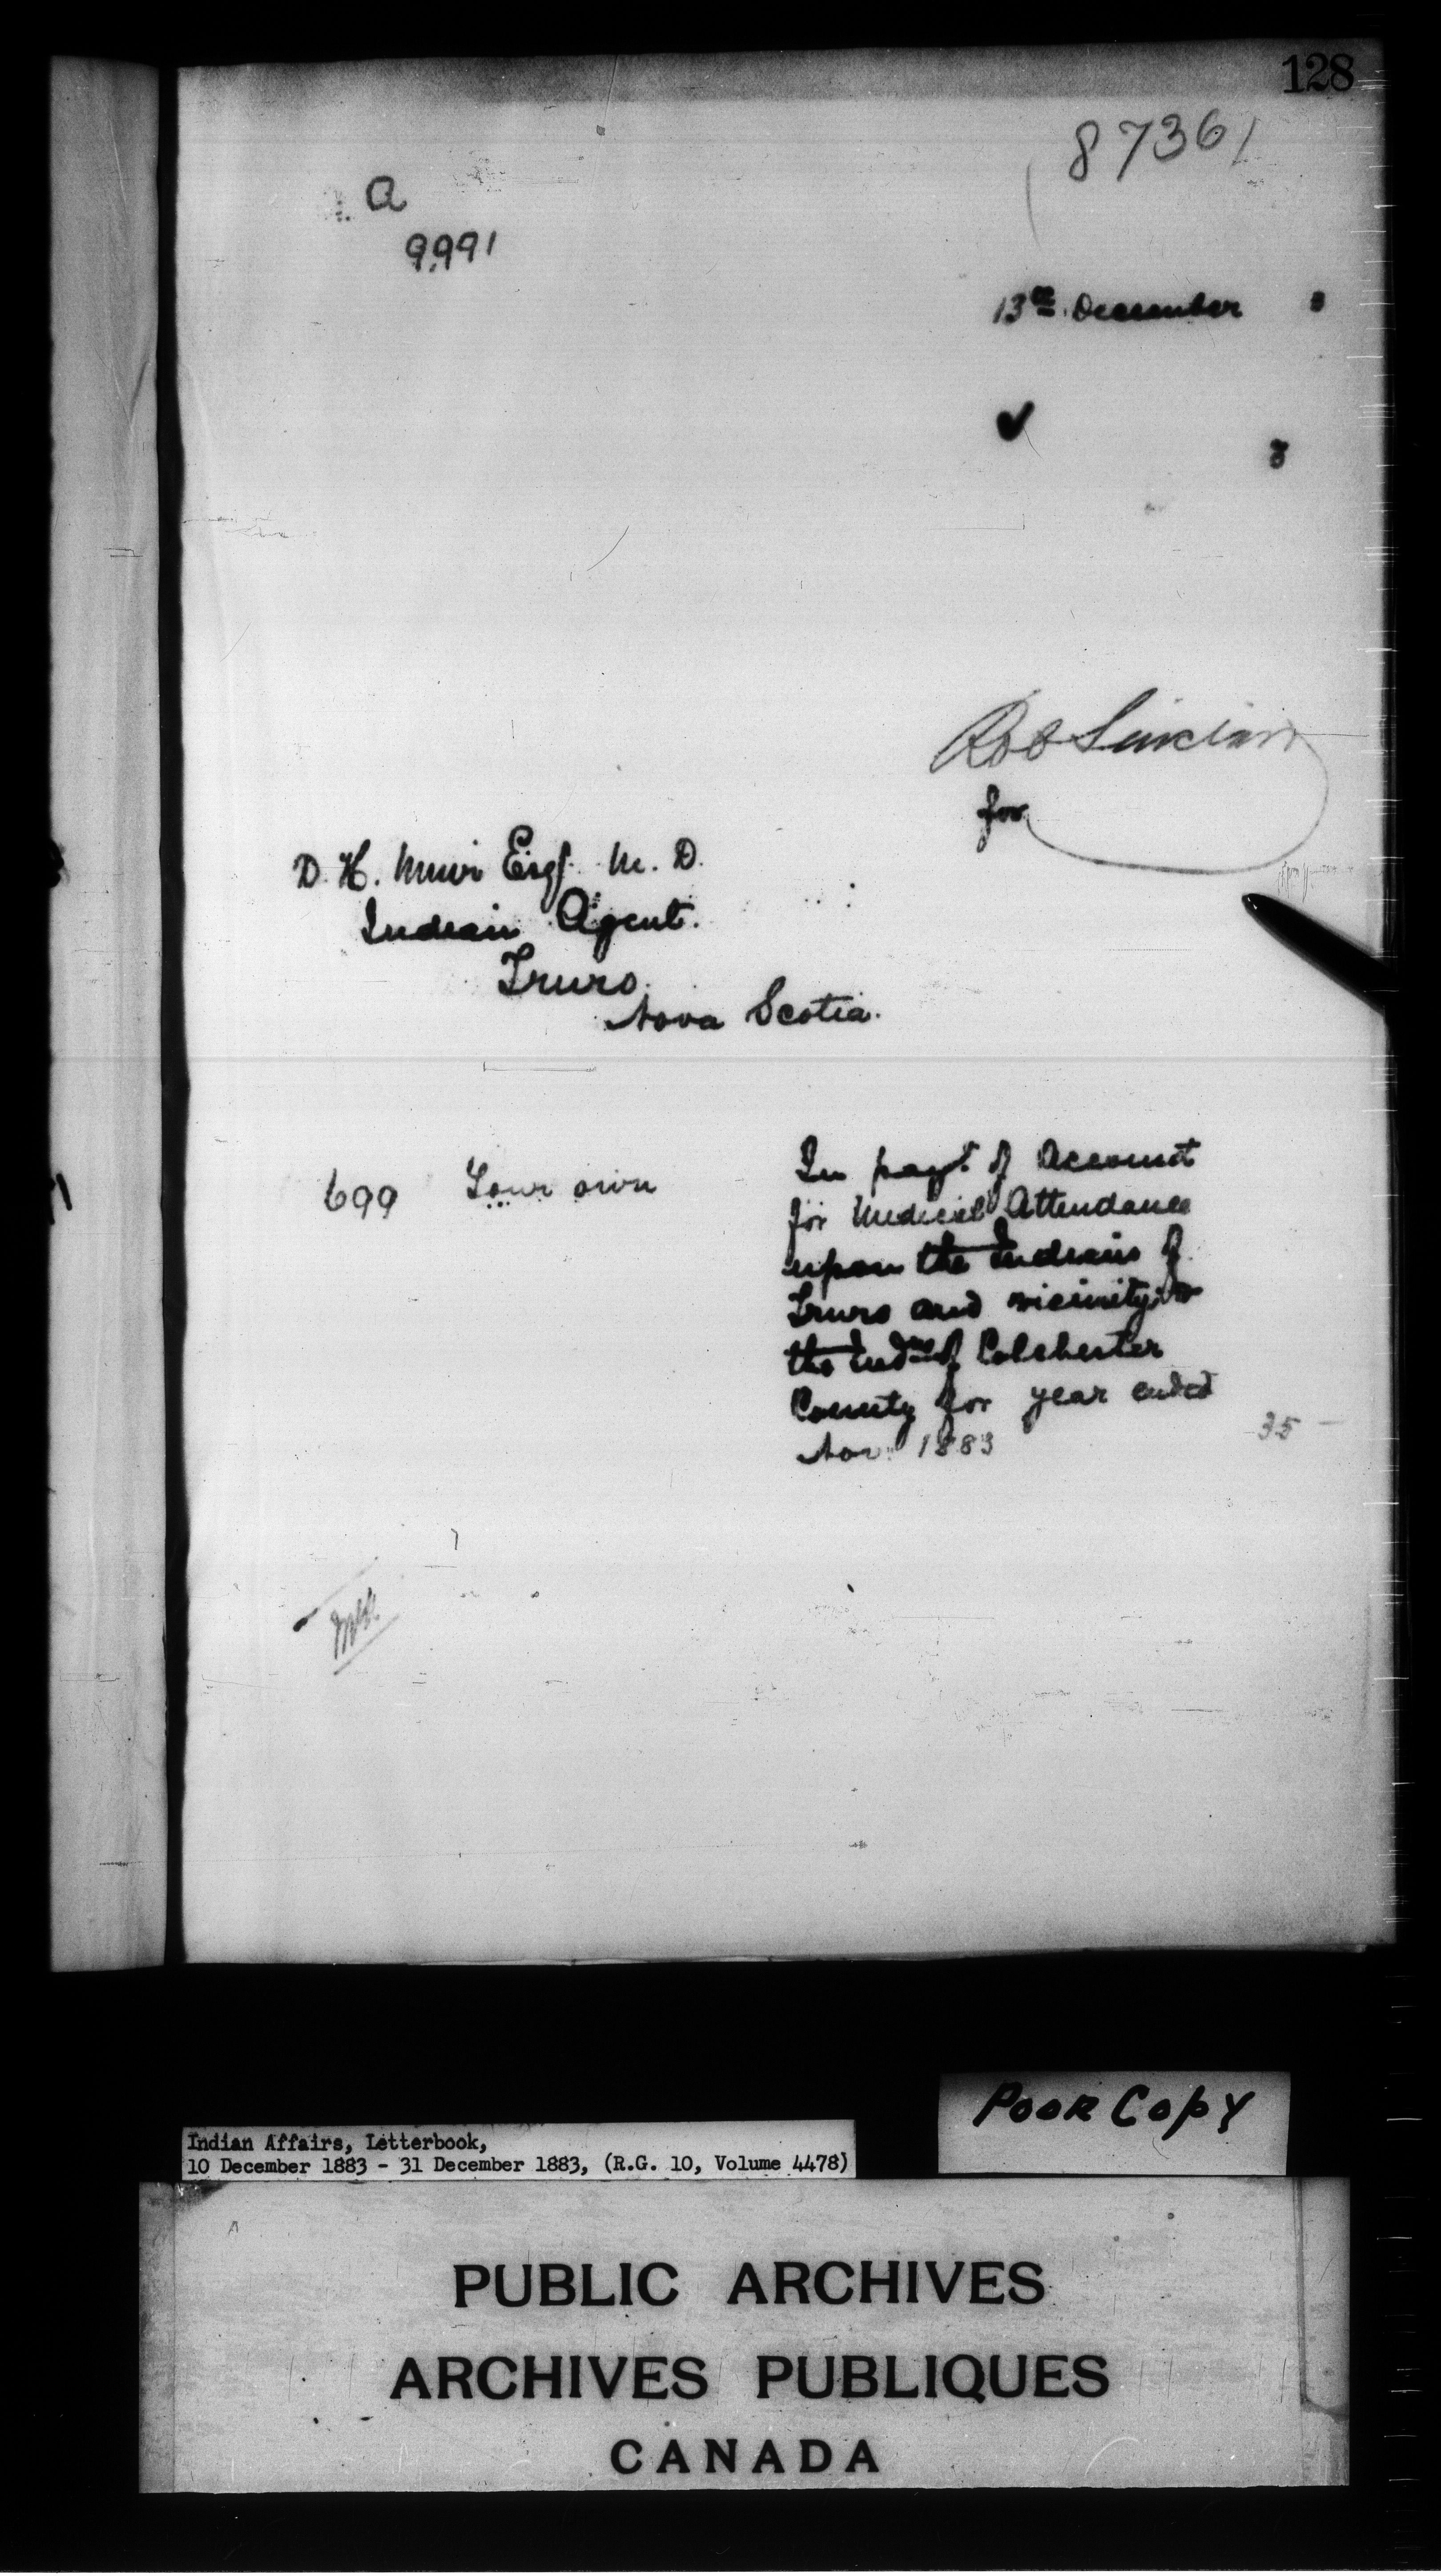 128
87361
a
9,991
13th December 3
3
Rob Sinclair
for
D. H. Muir Esq. M. D.
Indian Agent.
Truro.
Nova Scotia.
699 Your own
In payt. of Account
for Medical Attendance
upon the Indians of
Truro and vicinity
the Indns of Colchester
County for year ended
Nov. 1883 35 —
Poor Copy
Indian Affairs, Letterbook,
10 December 1883 - 31 December 1883, (R.G. 10, Volume 4478)
PUBLIC ARCHIVES
ARCHIVES PUBLIQUES
CANADA